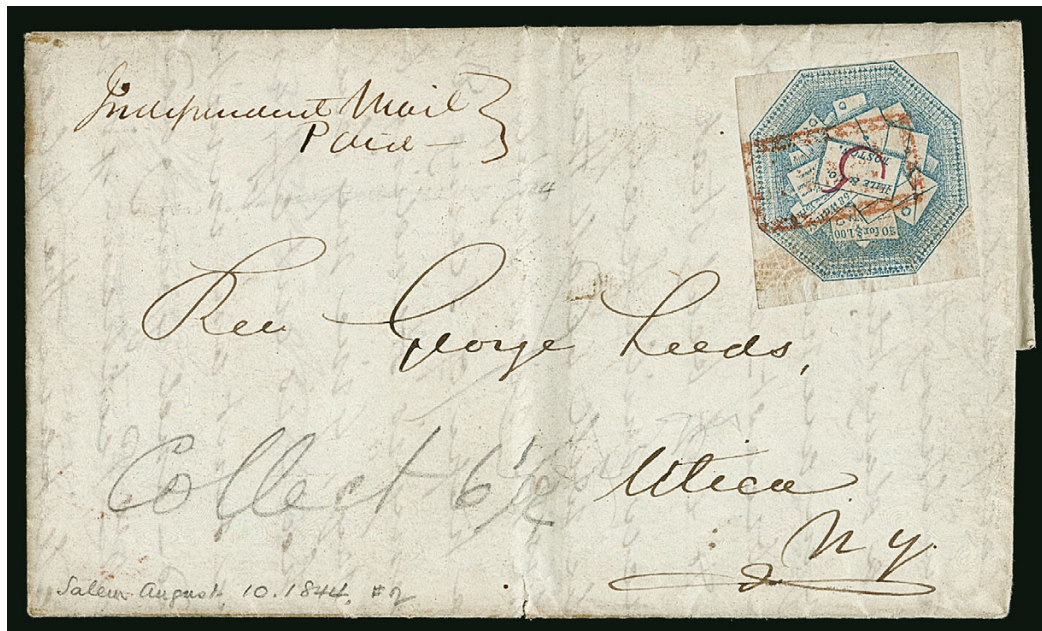 Independent Mail
Paid
Hale & Co.
POST
20 for $1.00
5
Rev George Leeds,
Collect 6 1/2
Utica
N y.
Salem August 10. 1844. #2